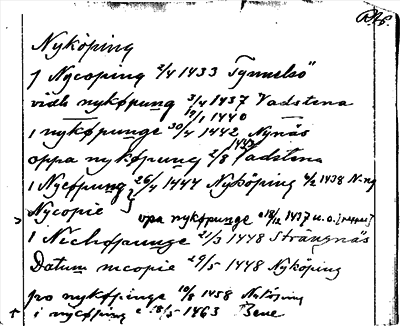 Nyköping
J Nycoping 2/4 1433 Tynnelsö
vidh nykøpung 3/4 1437 Vadstena
19/1 1440
i nykøpunge 30/4 1442 Nynäs
oppa nykøpung 2/8 1443 Vadstena
i Nycfpung 26/4 1444 Nyköping 4/2 1438 N-ng
Nycopie opa nykøpunge 18/12 1437 u.o.
i Nechøpunge 21/3 1448 Strängnäs
Datum ncopie 29/5 1448 Nyköping
po nykøpinge 10/8 1458
i nycøping 18/5 1463